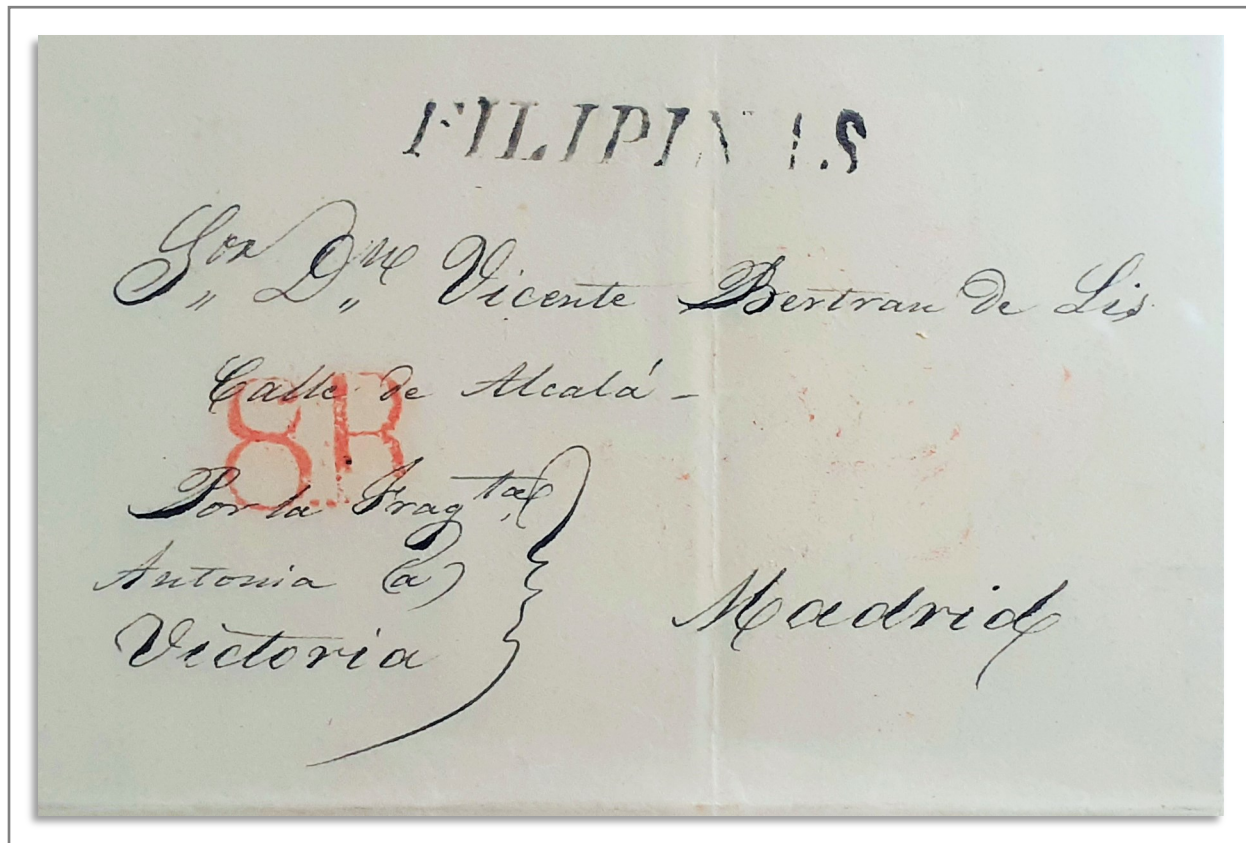 FILIPINAS
Sor Dn Vicente Bertran De Lis
Calle de Alcalá -
8R
Por la Fragta
Antonia (a)
Victoria
Madrid